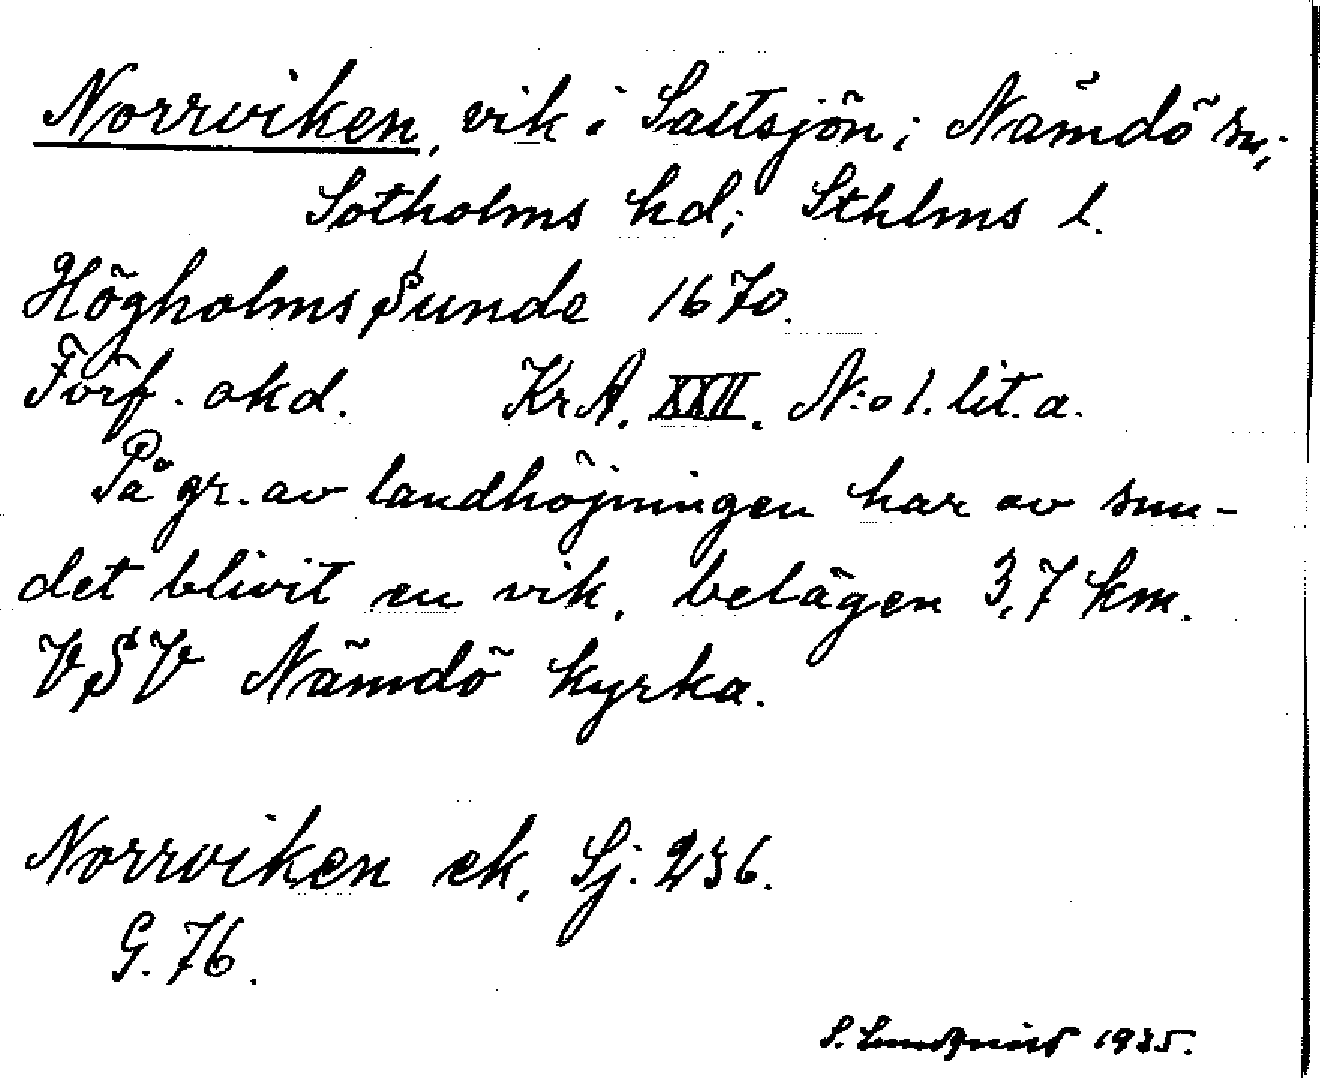 Norrviken, vik i Saltsjön; Nämdö sn;
Sotholms hd; Sthlms l.
Högholms Sunde 1670.
Förf. okd. KrA. XXII. N:o 1. lit. a.
På gr. av landhöjningen har av sun-
det blivit en vik, belägen 3,7 km.
VSV Nämdö kyrka.
Norrviken ek. Sj: 236.
G. 76.
S. Lundqvist 1935.